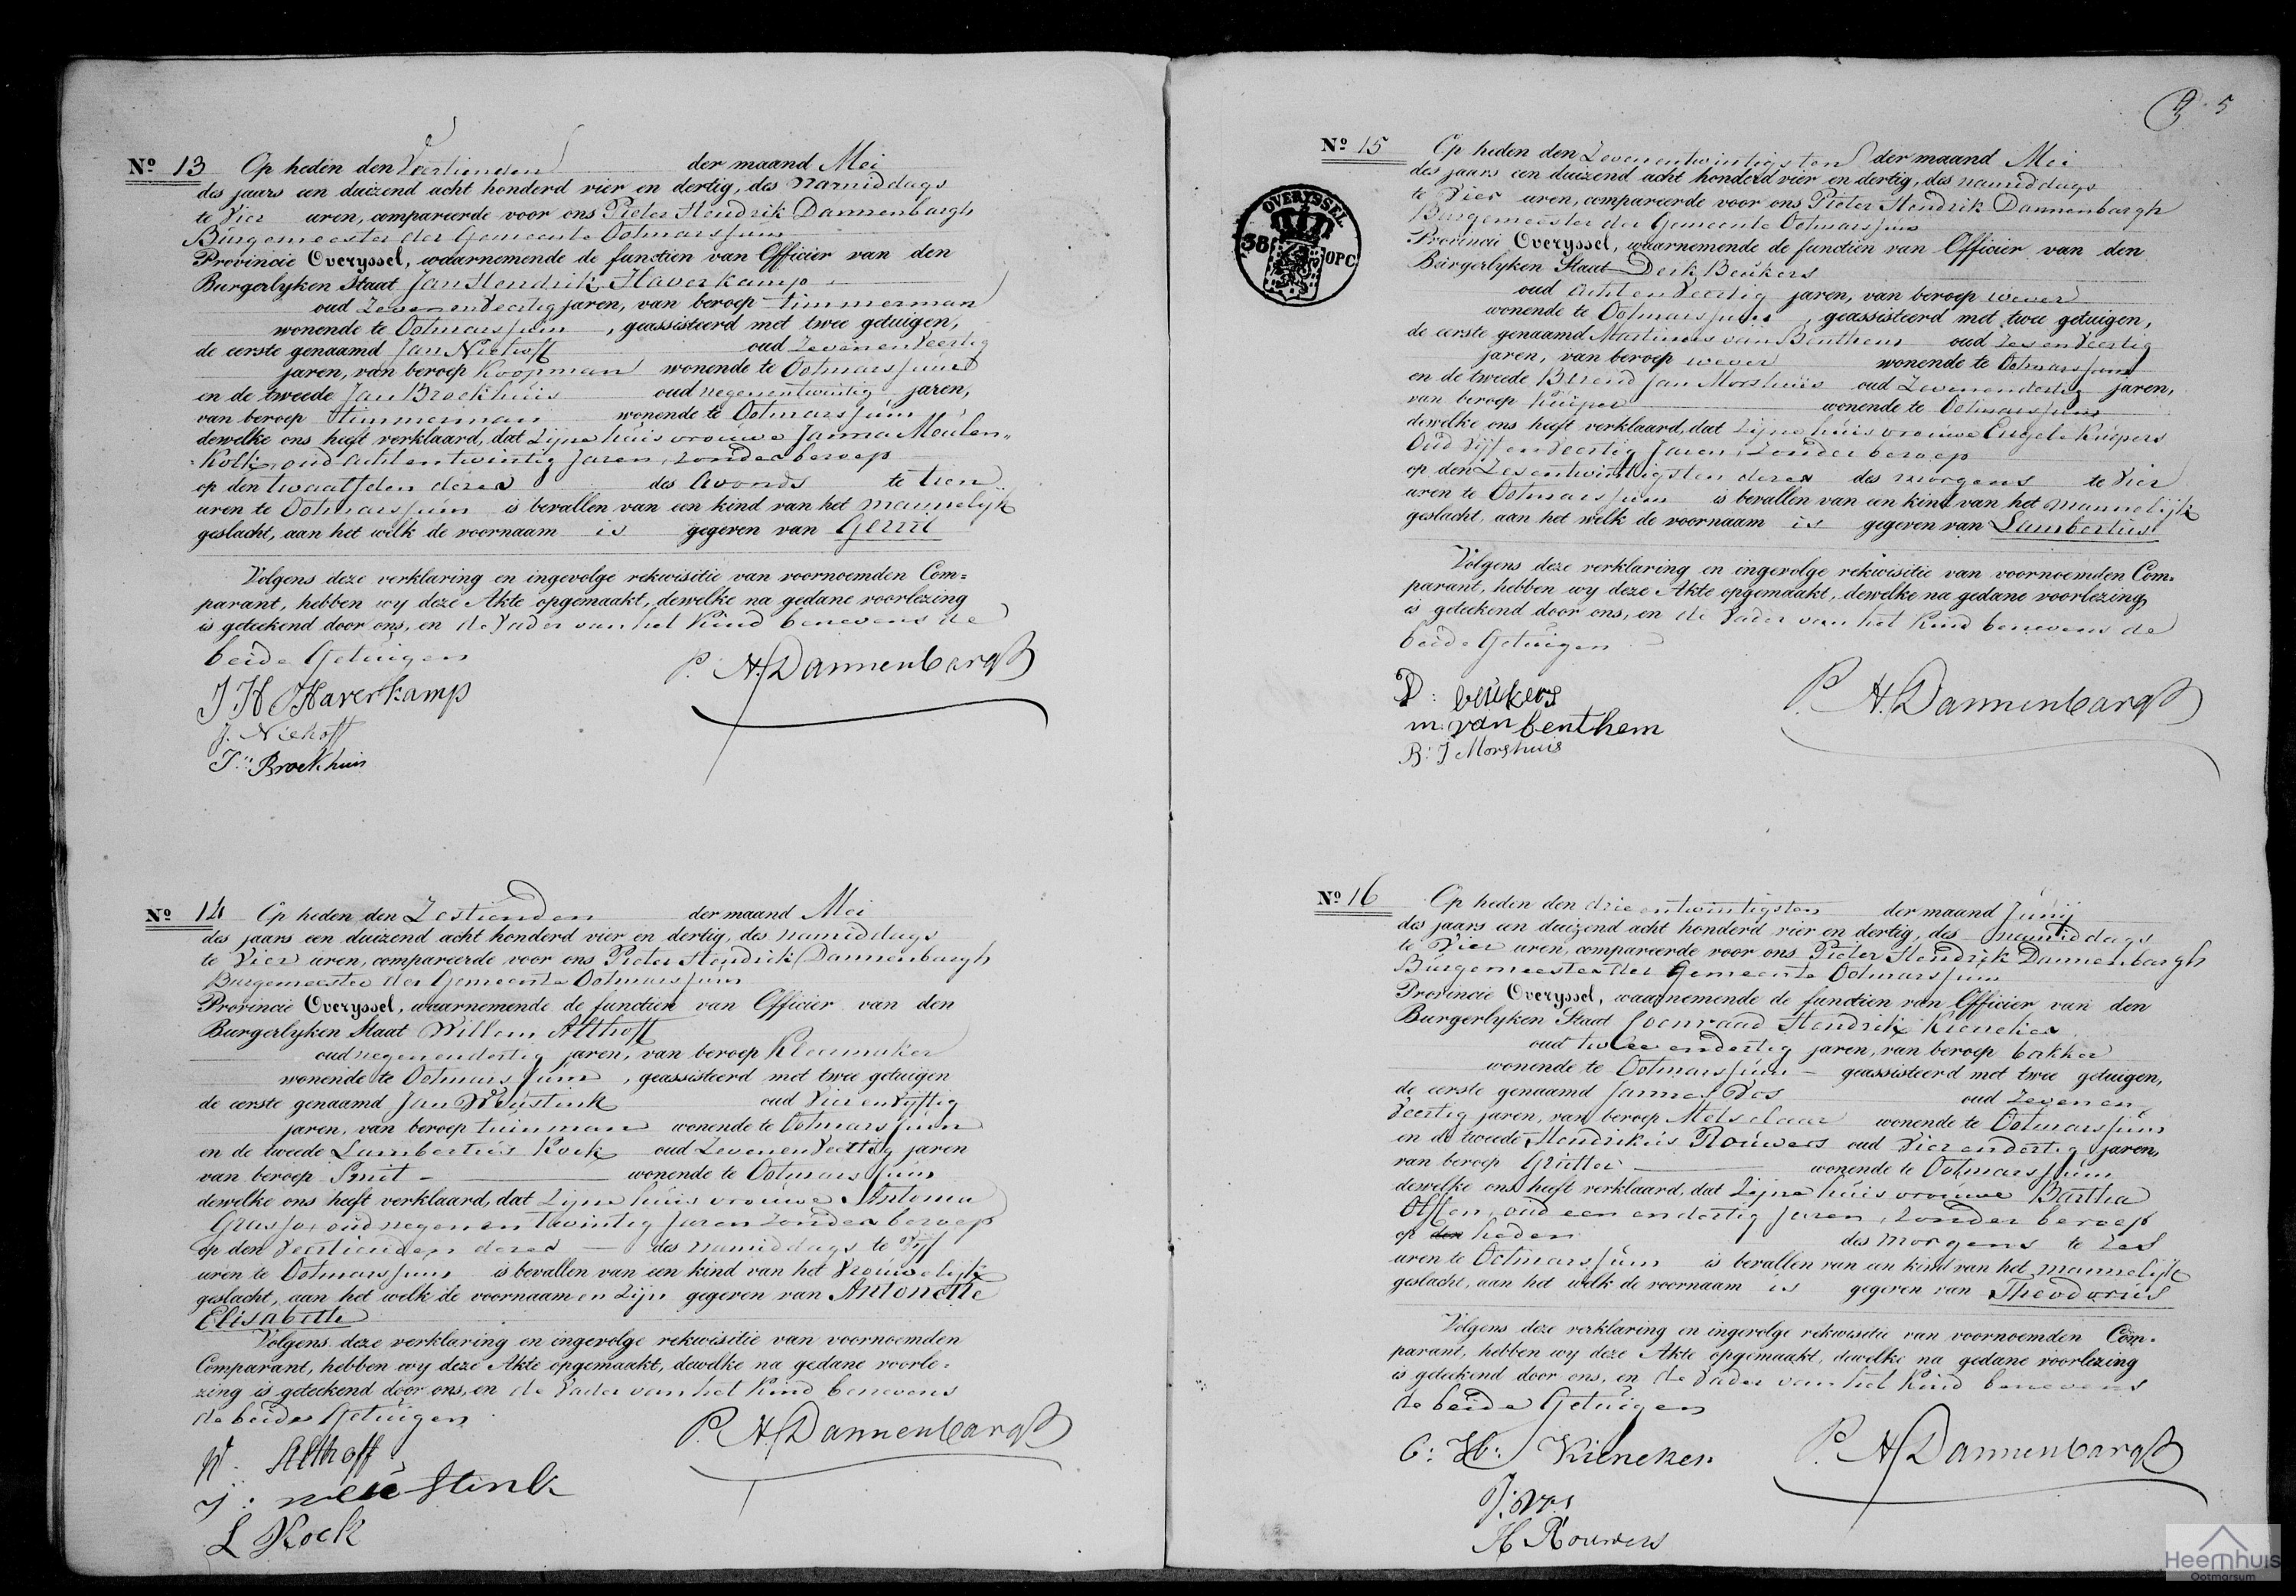 Nº 13 Op heden den Veertienden der maand Mei
des jaars een duizend acht honderd vier en dertig, des namiddags
te Vier uren, compareerde voor ons Pieter Hendrik Dannenbargh
Burgemeester der Gemeente Ootmarssum
Provincie Overyssel, waarnemende de functien van Officier van den
Burgerlyken Staat Jan Hendrik Haverkamp
oud Zevenenveertig jaren, van beroep timmerman
wonende te Ootmarssum, geassisteerd met twee getuigen,
de eerste genaamd Jan Niehoff oud Zevenenveertig
jaren, van beroep Koopman wonende te Ootmarssum
en de tweede Jan Broekhuis oud negenentwintig jaren,
van beroep timmerman wonende te Ootmarssum
dewelke ons heeft verklaard, dat Zijne huisvrouwe Janna Meulen„
Kolk, oud achtentwintig Jaren, zonder beroep
op den twaalfden dezer des Avonds te tien
uren te Ootmarssum is bevallen van een kind van het mannelijk
geslacht, aan het welk de voornaam is gegeven van Gerrit
Volgens deze verklaring en ingevolge rekwisitie van voornoemden Com=
parant, hebben wy deze Akte opgemaakt, dewelke na gedane voorlezing
is geteekend door ons, en de Vader van het Kind benevens de
beide Getuigen
P. H. Dannenbargh
J H Haverkamp
J. Niehoff
J: Broekhuis
Nº 14 Op heden den Zestienden der maand Mei
des jaars een duizend acht honderd vier en dertig, des namiddags
te Vier uren, compareerde voor ons Pieter Hendrik Dannenbargh
Burgemeester der Gemeente Ootmarssum
Provincie Overyssel, waarnemende de functien van Officier van den
Burgerlyken Staat Willem Althoff
oud negenendertig jaren, van beroep Kleermaker
wonende te Ootmarssum, geassisteerd met twee getuigen
de eerste genaamd Jan Weustink oud Vierenvijftig
jaren, van beroep tuinman wonende te Ootmarssum
en de tweede Lambertus Kock oud Zevenenveertig jaren
van beroep Smit wonende te Ootmarssum
dewelke ons heeft verklaard, dat Zijne huisvrouwe Antonia
oud negenentwintig Jaren zonder beroep
op den Veertienden dezer des namiddags te Vijf
uren te Ootmarssum is bevallen van een kind van het Vrouwelijk
geslacht, aan het welk de voornaam en Zijn gegeven van Antonette
Elisabeth
Volgens deze verklaring en ingevolge rekwisitie van voornoemden
Comparant, hebben wy deze Akte opgemaakt, dewelke na gedane voorle=
zing is geteekend door ons, en de Vader van het Kind benevens
de beide Getuigen
P. H. Dannenbargh
W. Althoff
J: weustink
L Kock
5
Nº 15 Op heden den Zevenentwintigsten der maand Mei
des jaars een duizend acht honderd vier en dertig, des namiddags
te Vier uren, compareerde voor ons Pieter Hendrik Dannenbargh
Burgemeester der Gemeente Ootmarssum
Provincie Overyssel, waarnemende de functien van Officier van den
Burgerlyken Staat Derk Beukers
oud achtenveertig jaren, van beroep wever
wonende te Ootmarssum, geassisteerd met twee getuigen,
de eerste genaamd Martinus van Benthem oud Zesenveertig
jaren, van beroep wever wonende te Ootmarssum
en de tweede Berend Jan Morshuis oud Zevenendertig jaren,
van beroep Kuiper wonende te Ootmarssum
dewelke ons heeft verklaard, dat Zijne huisvrouwe Engele Kuipers
Oud Vijfenveertig Jaren, Zonder beroep
op den Zesentwintigsten dezer des morgens te Vier
uren te Ootmarssum is bevallen van een kind van het mannelijk
geslacht, aan het welk de voornaam is gegeven van Lambertus
Volgens deze verklaring en ingevolge rekwisitie van voornoemden Com=
parant, hebben wy deze Akte opgemaakt, dewelke na gedane voorlezing
is geteekend door ons, en de Vader van het Kind benevens de
beide Getuigen
OVERYSSEL
38 OPC
P. H. Dannenbargh
D: beukers
m: van benthem
B: J Morshuis
Nº 16 Op heden den drieentwintigsten der maand Junij
des jaars een duizend acht honderd vier en dertig, des namiddags
te Vier uren, compareerde voor ons Pieter Hendrik Dannenbargh
Burgemeester der Gemeente Ootmarssum
Provincie Overyssel, waarnemende de functien van Officier van den
Burgerlyken Staat Coenraad Hendrik Kieneker
oud twee endertig jaren, van beroep bakker
wonende te Ootmarssum geassisteerd met twee getuigen,
de eerste genaamd Jannes Vos oud Zeven en
Veertig jaren, van beroep Metselaar wonende te Ootmarssum
en de tweede Hendrikus Rouwers oud Vierendertig jaren,
van beroep Grutter wonende te Ootmarssum
dewelke ons heeft verklaard, dat Zijne huisvrouwe Bartha
oud een endertig Jaren, zonder beroep
op den heden des morgens te Zes
uren te Ootmarssum is bevallen van een kind van het mannelijk
geslacht, aan het welk de voornaam is gegeven van Theodorus
Volgens deze verklaring en ingevolge rekwisitie van voornoemden Com=
parant, hebben wy deze Akte opgemaakt, dewelke na gedane voorlezing
is geteekend door ons, en de Vader van het Kind benevens
de beide Getuigen
P. H. Dannenbargh
C: H: Kieneker
J: Vos
H Rouwers
Heemhuis
Ootmarsum